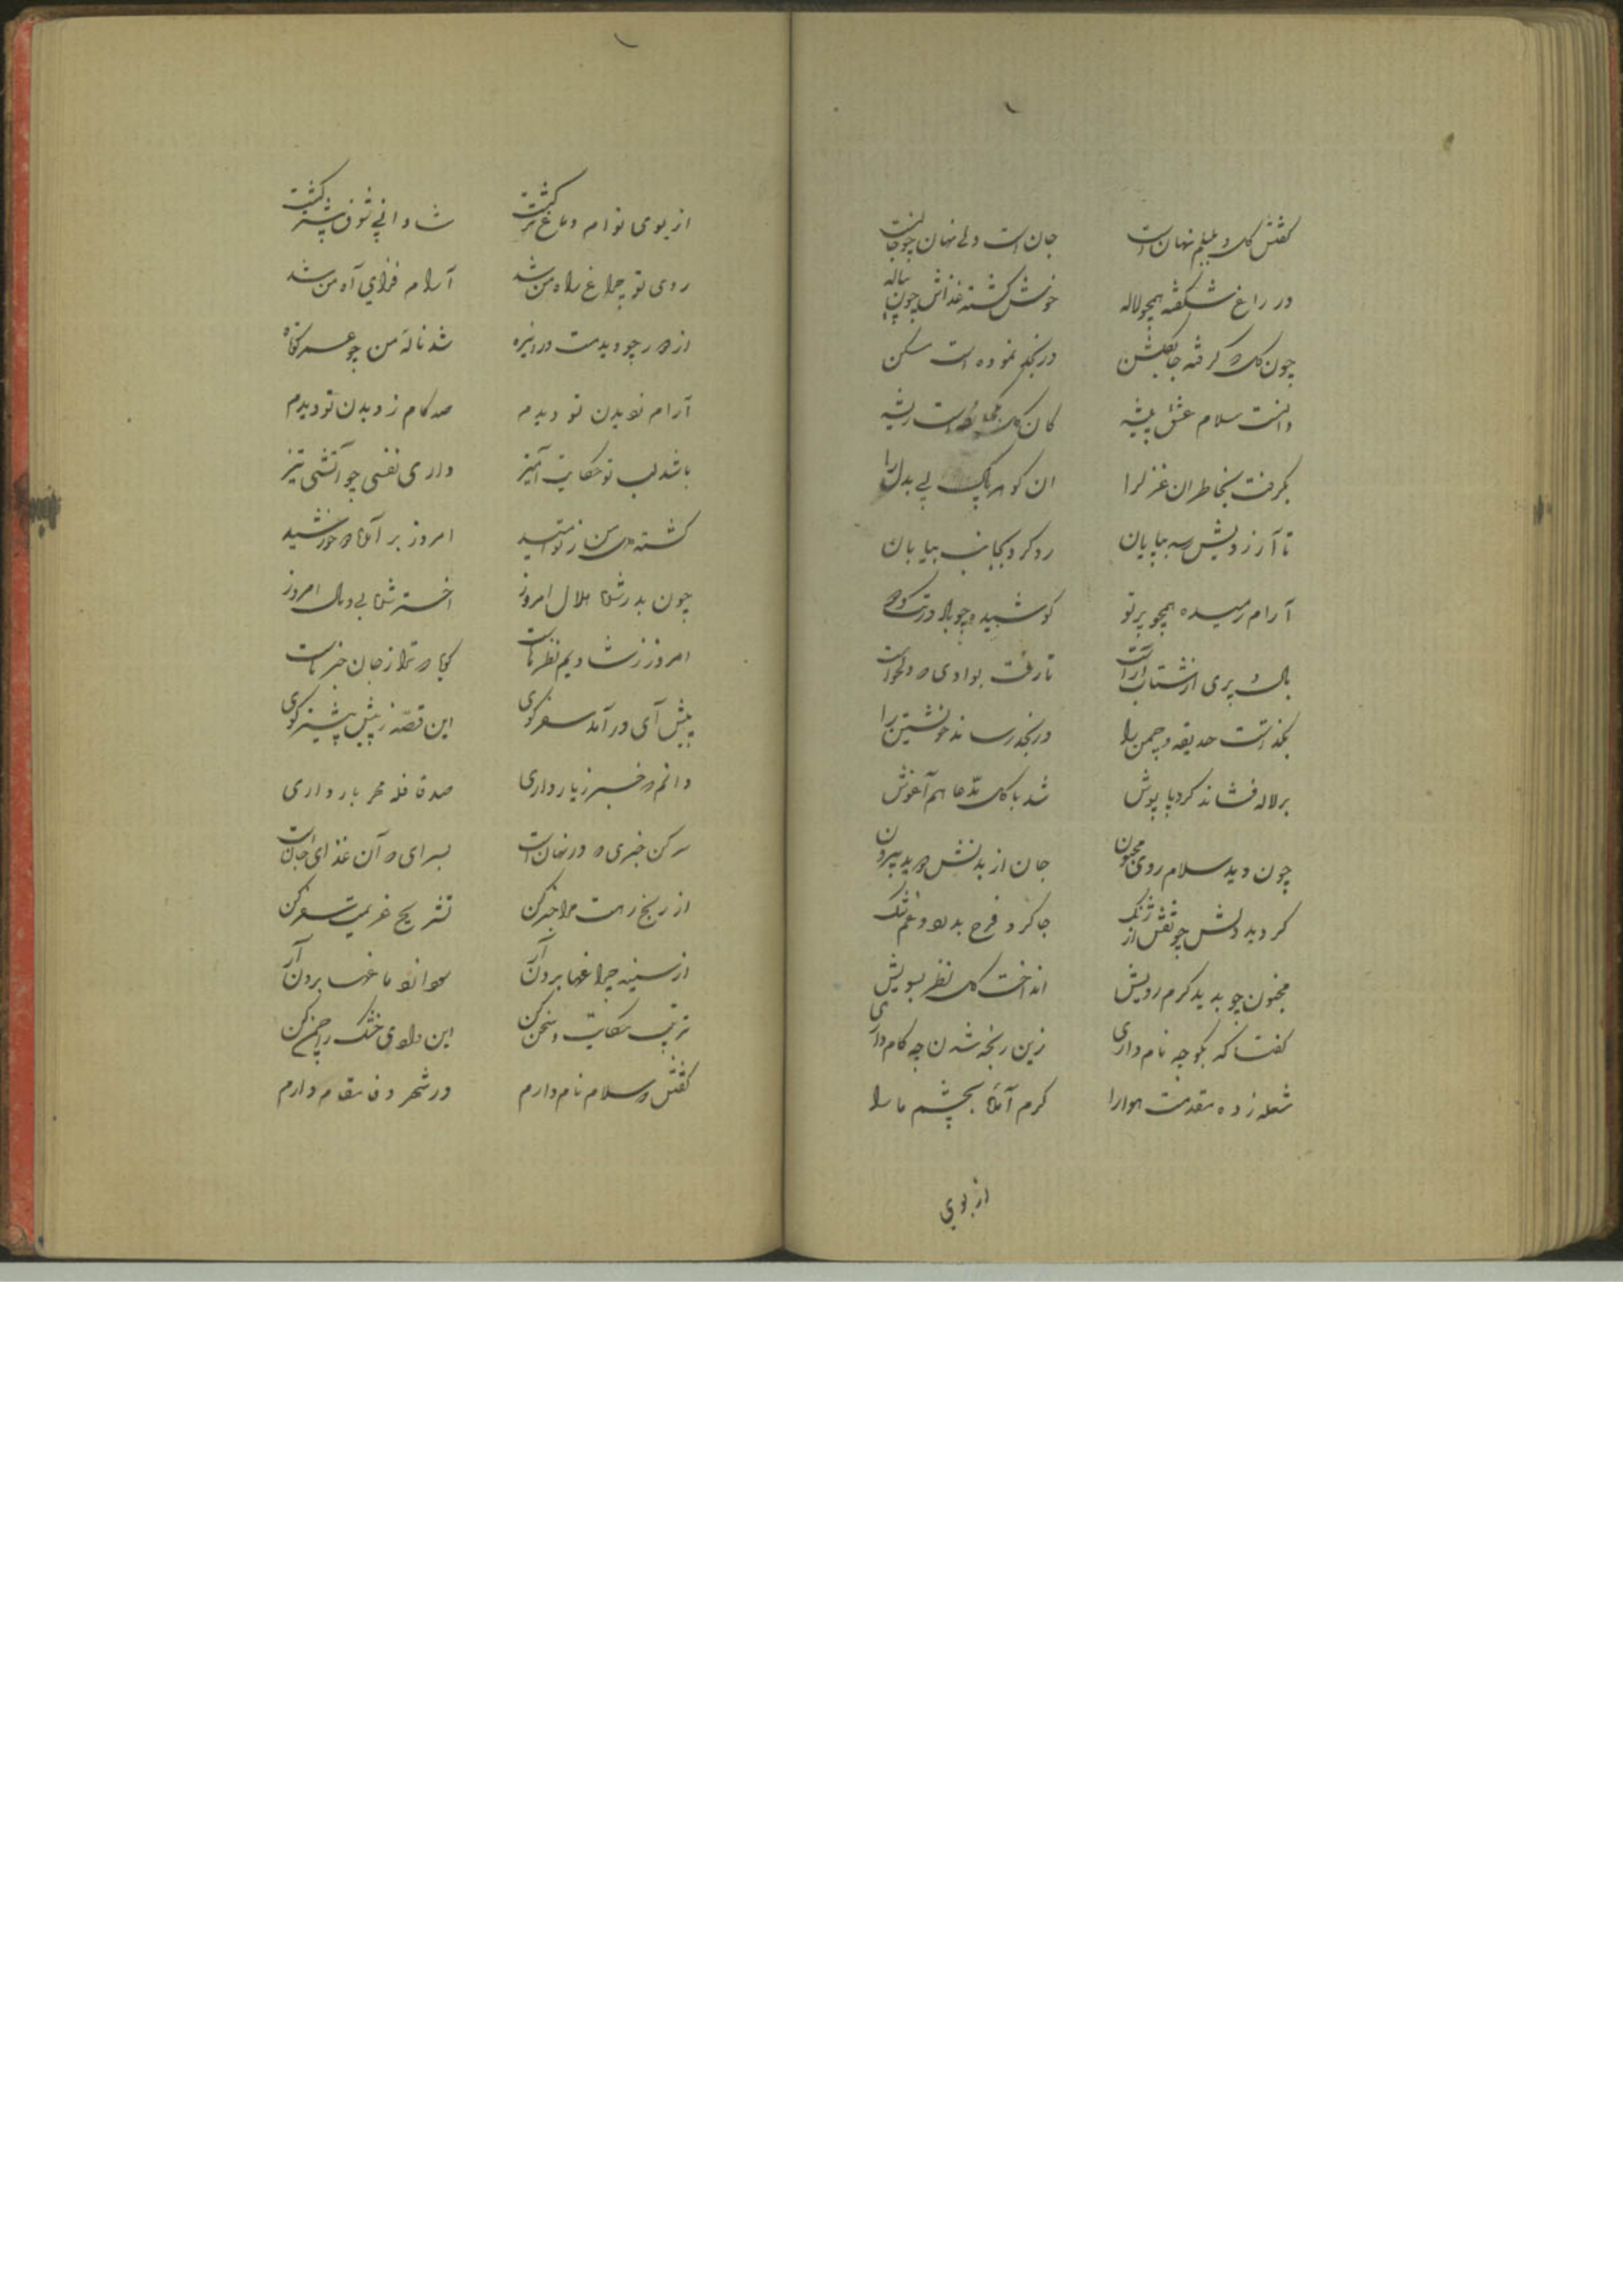 گفتش که دلیلم نهان است جان است ولی نهان چو جانست
در راغ شکفته همچو لاله خوش گشته غذاش چون پیاله
چون گل گرفته جا بگلشن در نجد نموده است مسکن
دانست سلام عشق پیشه کان است ریشه
بگرفت بخاطر ان غزل را ان گوهر پاک بی بدل را
تا آرزویش رسد بپایان رو کرد بجانب بیابان
آرام رمیده همچو پرتو کوشیده چو باد در
بال و پری از شتاب آراست تا رفت بوادی که دلخواست
بگذاشت حدیقه و چمن را در نجد رساند خویشتن را
بر لاله فشاند گرد پاپوش شد با گل مدعا هم آغوش
چون دید سلام روی مجنون جان از بدنش دوید بیرون
گردید دلش چو نقش ارژنگ جا کرد فرح بدل و غم تنگ
مجنون چو بدید گرم رویش انداخت گل نظر بسویش
گفتا که بگو چه نام داری زین رنجه شدن چه کام داری
شعله زده مقدمت هوا را گرم آمده بچشم ما را
از بوی
از بوی توام دماغ تر گشت شادابی شوق بیشتر گشت
روی تو چراغ راه من شد آرام فزای آه من شد
از دور چو دیدمت شد ناله من چو عمر کوتاه
آرام ز دیدن تو دیدم صد کام ز دیدن تو دیدم
باشد لب تو حکایت آمیز داری نفسی چو آتشی تیز
گشته من ز تو امید امروز بر آمده خورشید
چون بدر شده هلال امروز اختر شده بی وبال امروز
امروز ز شادیم نظرهاست گویا که ترا ز جان خبرهاست
پیش آی و درآمد سفر گوی این قصه ز پیش بیشتر گوی
دانم که خبر ز یار داری صد قافله بار داری
سر کن خبری که در نهان است بسرای که آن غذای جان است
از رنج رهت مرا خبر کن تشریح غریمت سفر کن
از سینه چراغها برون آر ما برون آر
ترتیب حکایت و سخن کن این وادی خشک را چمن کن
گفتش که سلام نام دارم در شهر وفا مقام دارم